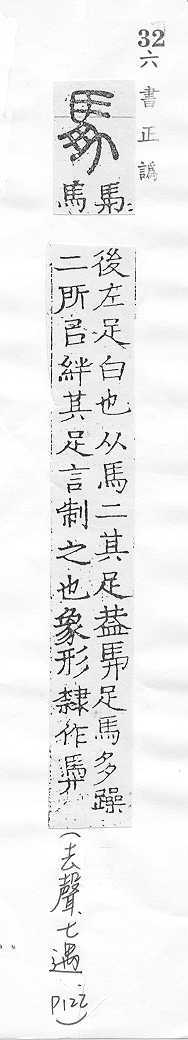 32
六書正譌
後左足白也从馬二其足葢馵足馬多躁
二所㠯絆其足言制之也象形隸作馵
(去聲七遇